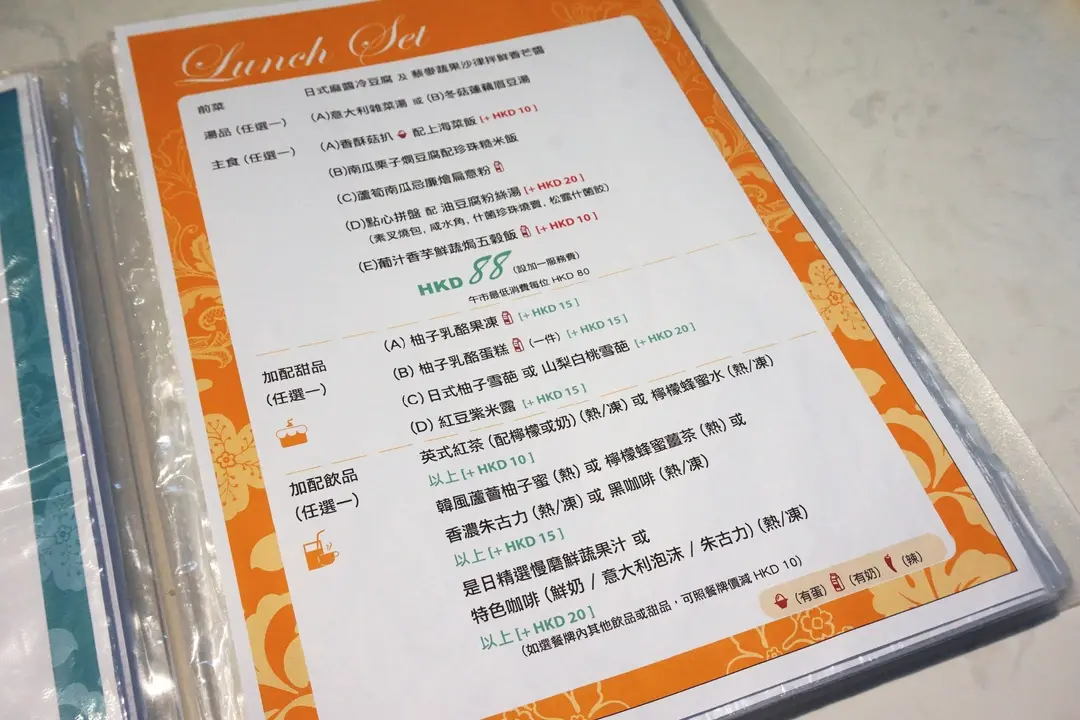 Lunch Set
前菜 日式麻醬冷豆腐 及 藜麥蔬果沙律拌鮮香芒醬
湯品 (任選一) (A)意大利雜菜湯 或 (B)冬菇蓮藕眉豆湯
主食 (任選一) (A)香酥菇扒 配上海菜飯 [+ HKD 10]
(B)南瓜栗子燜豆腐配珍珠糙米飯
(C)蘆筍南瓜忌廉燴扁意粉
(D)點心拼盤 配 油豆腐粉絲湯 [+ HKD 20]
(素叉燒包, 咸水角, 什菌珍珠燒賣, 松露什菌餃)
(E)葡汁香芋鮮蔬焗五穀飯 [+ HKD 10]
HKD 88 (設加一服務費)
午市最低消費每位 HKD 80
加配甜品
(任選一)
(A) 柚子乳酪果凍 [+ HKD 15]
(B) 柚子乳酪蛋糕 (一件) [+ HKD 15]
(C) 日式柚子雪葩 或 山梨白桃雪葩 [+ HKD 20]
(D) 紅豆紫米露 [+ HKD 15]
加配飲品
(任選一)
英式紅茶 (配檸檬或奶) (熱/凍) 或 檸檬蜂蜜水 (熱/凍)
以上 [+ HKD 10]
韓風蘆薈柚子蜜 (熱) 或 檸檬蜂蜜薑茶 (熱) 或
香濃朱古力 (熱/凍) 或 黑咖啡 (熱/凍)
以上 [+ HKD 15]
是日精選慢磨鮮蔬果汁 或
特色咖啡 (鮮奶 / 意大利泡沫 / 朱古力) (熱/凍)
以上 [+ HKD 20]
(如選餐牌內其他飲品或甜品，可照餐牌價減 HKD 10)
(有蛋) (有奶) (辣)